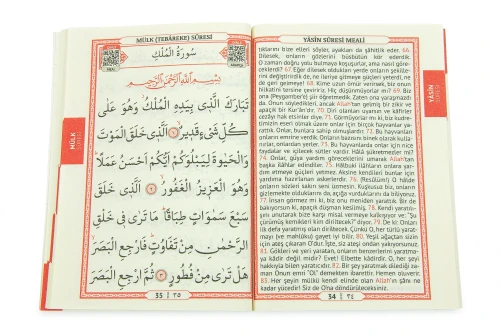 MÜLK (TEBÂREKE) SÛRESİ
سُورَةُ الْمُلْكِ
بِسْمِ اللّٰهِ الرَّحْمٰنِ الرَّحِيمِ
تَبَارَكَ الَّذِى بِيَدِهِ الْمُلْكُ وَهُوَ عَلٰى
كُلِّ شَىْءٍ قَدِيرٌ ١ اَلَّذِى خَلَقَ الْمَوْتَ
وَالْحَيٰوةَ لِيَبْلُوَكُمْ اَيُّكُمْ اَحْسَنُ عَمَلًا
وَهُوَ الْعَزِيزُ الْغَفُورُ ٢ اَلَّذِى خَلَقَ
سَبْعَ سَمٰوَاتٍ طِبَاقًا مَا تَرٰى فِى خَلْقِ
الرَّحْمٰنِ مِنْ تَفَاوُتٍ فَارْجِعِ الْبَصَرَ
هَلْ تَرٰى مِنْ فُطُورٍ ٣ ثُمَّ ارْجِعِ الْبَصَرَ
35 ٣٥
MÜLK
YÂSÎN SÛRESİ MEALİ
tıklarını bize elleri söyler, ayakları da şâhitlik eder. 66.
Dilesek, onların gözlerini büsbütün kör ederdik.
O zaman doğru yolu bulmaya koşuşurlar, ama nasıl göre-
ceklerdi? 67. Eğer dilesek oldukları yerde onların şekille-
rini değiştirirdik de, ne ileriye gitmeye güçleri yeterdi, ne
de geri gelmeye! 68. Kime uzun ömür verirsek, biz onun
hilkatini tersine çeviririz. Hiç düşünmüyorlar mı? 69. Biz
ona (Peygamber'e) şiir öğretmedik. Zaten ona yaraşmazdı
da. Onun söyledikleri, ancak Allah'tan gelmiş bir zikir ve
apaçık bir Kur'ân'dır. 70. Diri olanları uyarsın ve kâfirler
cezâyı hak etsinler diye. 71. Görmüyorlar mı ki, biz kudre-
timizin eseri olmak üzere onlar için birçok hayvanlar ya-
rattık. Onlar, bunlara sahip olmuşlardır. 72. Bu hayvanları
onların emrine verdik. Onların bazısını binek olarak kulla-
nırlar, onlardan yerler. 73. Bu hayvanlarda onlar için nice
faydalar ve içilecek sütler vardır. Hâlâ şükretmezler mi?
74. Onlar, güya yardım göreceklerini umarak Allah'tan
başka ilâhlar edindiler. 75. Hâlbuki ilâhların onlara yardım
etmeye güçleri yetmez. Aksine kendileri bunlar için
yardıma hazırlanan askerlerdir. 76. (Resûlüm!) O hâlde
onların sözleri sakın seni üzmesin. Kuşkusuz biz, onların
gizlemekte olduklarını da, açığa vurduklarını da biliyoruz.
77. İnsan görmez mi ki, biz onu meniden yarattık. Bir de
bakıyorsun ki, apaçık düşman kesilmiş. 78. Kendi yaratılı-
şını unutarak bize karşı misal vermeye kalkışıyor ve: "Şu
çürümüş kemikleri kim diriltecek?" diyor. 79. De ki: Onları
ilk defa yaratmış olan diriltecek. Çünkü O, her türlü yarat-
mayı (ve mahlûku) gayet iyi bilir. 80. Yeşil ağaçtan sizin
için ateş çıkaran O'dur. İşte, siz ateşi ondan yakıyorsunuz.
81. Gökleri ve yeri yaratan, onların benzerlerini yaratma-
ya kâdir değil midir? Evet! Elbette kâdirdir. O, her şeyi
hakkıyla bilen yaratıcıdır. 82. Bir şey yaratmak dilediği za-
man Onun emri "Ol" demekten ibarettir. Hemen oluverir.
83. Her şeyin mülkü kendi elinde olan Allah'ın şânı ne
kadar yücedir! Siz de Ona döndürüleceksiniz.
34 ٣٤
YÂSÎN